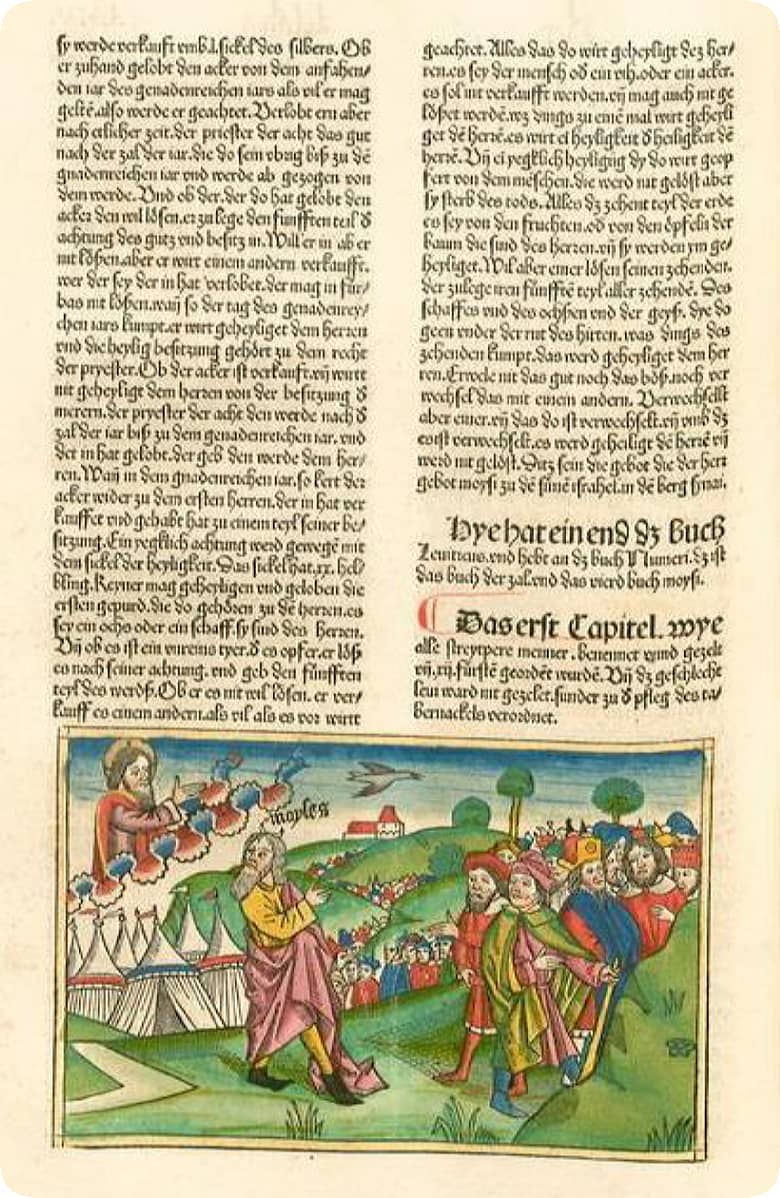 sy werde verkauft vmb.l.sickel des silbers. Ob
er zuhand gelobt den acker von dem anfahen/
den iar des genadenreichen iars als vil er mag
geltē.also werde er geachtet. Verlobt ern aber
nach etlicher zeit.der priester der acht das gut
nach der zal der iar.die do sein vbrig biß zu dē
gnadenreichen iar vnd werde ab gezogen von
dem werde. Vnd ob der.der do hat gelobt den
acker den wil lösen.er zu lege den fünfften teil ď
achtung des gutz vnd besitz in. Will er in ab er
nit lösen.aber er wirt einem andern verkaufft.
wer der sey der in hat verlobet.der mag in für/
bas nit lösen.wañ so der tag des genadenrey/
chen iars kumpt.er wirt geheyliget dem herren
vnd die heylig besitzung gehört zu dem recht
der pryester. Ob der acker ist verkauft.vñ wirtt
nit geheyligt dem herren von der besitzung ď
merern.der pryester der acht den werde nach ď
zal der iar biß zu dem genadenreichen iar. vnd
der in hat gelobt.der geb den werde dem her/
ren. Wañ in dem gnadenreichen iar.so kert der
acker wider zu dem ersten herren.der in hat ver
kauffet vnd gehabt hat zu einem teyl seiner be/
sitzung. Ein yegklich achtung werd gewegē mit
dem sickel der heyligkeit. Das sickel hat.xx. hel/
bling. Keyner mag geheyligen vnd geloben die
ersten gepurd.die do gehören zu dē herren.es
sey ein ochs oder ein schaff.sy sind des herren.
Vñ ob es ist ein vnreins tyer.ď es opfer.er löß
es nach seiner achtung. vnd geb den fünfften
teyl des werds. Ob er es nit wil lösen. er ver/
kauff es einem andern.als vil als es vor wirtt
geachtet. Alles das do wirt geheyligt dez her/
ren.es sey der mensch od ein vih.oder ein acker.
es sol nit verkaufft werden.vñ mag auch nit ge
löset werdē.wz dings zu einē mal wirt geheyli
get dē herrē.es wirt ei heyligkeit ď heiligkeit dē
herrē. Vñ ei yegklich heyligūg dy do wirt geop
fert von dem mēschen.die werd nit gelöst aber
sy sterb des tods. Alles dz zehent teyl der erde
es sey von den fruchten.od von den öpfeln der
baum die sind des herren.vñ sy werden ym ge/
heyliget. Wil aber einer lösen seinen zehenden.
der zulege iren fünfftē teyl aller zehendē. Des
schaffes vnd des ochsen vnd der geyß. dye do
geen vnder der rut des hirten. was dings des
zehenden kumpt.das werd geheyliget dem her
ren. Erwele nit das gut noch das böß.noch ver
wechsel das mit einem andern. Verwechselt
aber einer.vñ das do ist verwechselt.vñ vmb dz
es ist verwechselt.es werd geheiligt dē herrē vñ
werd nit gelöst. Ditz sein die gebot die der herr
gebot moysi zu dē sünē israhel.in dē berg synai.
Hye hat ein end dz buch
Leuiticus.vnd hebt an dz buch Numeri.dz ist
das buch der zal.vnd das vierd buch moysi.
Das erst Capitel. wye
alle streytpere menner. benennet vnnd gezelt
vñ.xij.fürstē geordēt wurdē. Vñ dz geschlecht
leui ward nit gezelet.sunder zu ď pfleg des ta/
bernackels verordnet.
moyses